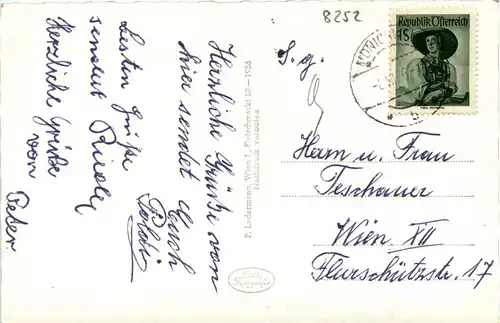 8252
Republik Österreich
1S
S. g.
Herrn u. Frau
Teschauer
Wien XII
Flurschützstr. 17
Herzliche Grüße von
hier sendet Euch
Poldi
Besten Grüße
sendet Rudolf
Herzliche Grüße
von
Peter
P. Ledermann, Wien I., Fleischmarkt 20 - 1956
Nachdruck verboten